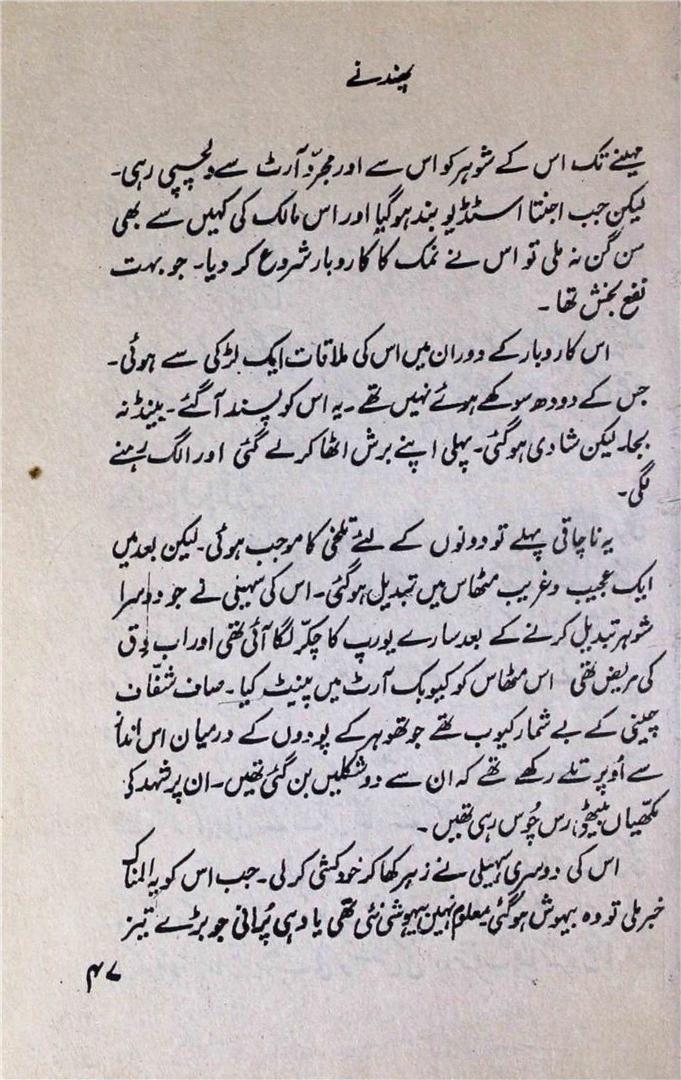 پھندنے
مہینے تک اس کے شوہر کو اس سے اور مجرّد آرٹ سے دلچسپی رہی۔
لیکن جب اجنتا اسٹڈیو بند ہوگیا اور اس مالک کی کہیں سے بھی
سن گن نہ ملی تو اس نے نمک کا کاروبار شروع کر دیا۔ جو بہت
نفع بخش تھا۔
اس کاروبار کے دوران میں اس کی ملاقات ایک لڑکی سے ہوئی۔
جس کے دودھ سوکھے ہوئے نہیں تھے۔ یہ اس کو پسند آگئے۔ بینڈ نہ
بجا۔ لیکن شادی ہوگئی۔ پہلی اپنے برش اٹھا کر لے گئی اور الگ رہنے
لگی۔
یہ ناچاقی پہلے تو دونوں کے لئے تلخی کا موجب ہوئی۔ لیکن بعد میں
ایک عجیب و غریب مٹھاس میں تبدیل ہوگئی۔ اس کی سہیلی نے جو دوسرا
شوہر تبدیل کرنے کے بعد سارے یورپ کا چکّر لگا آئی تھی اور اب دِق
کی مریض تھی اس مٹھاس کو کیوبک آرٹ میں پینٹ کیا۔ صاف شفّاف
چینی کے بے شمار کیوب تھے جو تھوہر کے پودوں کے درمیان اس انداز
سے اُوپر تلے رکھے تھے کہ ان سے دو شکلیں بن گئی تھیں۔ ان پر شہد کی
مکھیاں بیٹھی رس چُوس رہی تھیں۔
اس کی دوسری سہیلی نے زہر کھا کر خودکشی کرلی۔ جب اس کو یہ المناک
خبر ملی تو وہ بیہوش ہوگئی معلوم نہیں بیہوشی نئی تھی یا وہی پُرانی جو بڑے تیز
۴۷